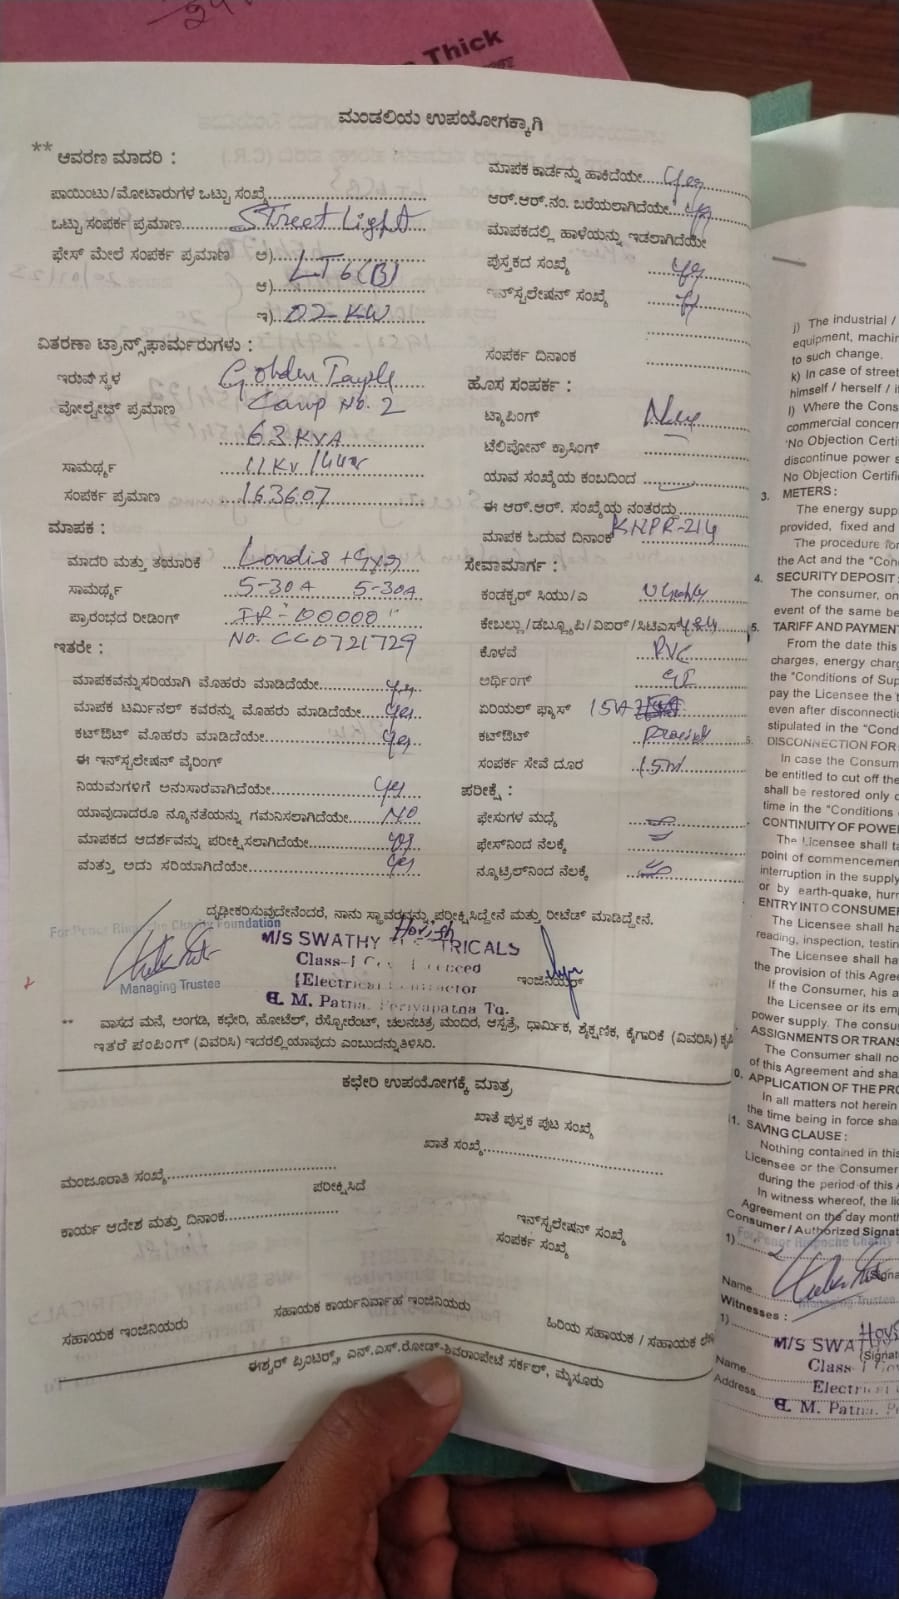 Thick
ಮಂಡಲಿಯ ಉಪಯೋಗಕ್ಕಾಗಿ
** ಆವರಣ ಮಾದರಿ :
ಪಾಯಿಂಟು/ಮೋಟಾರುಗಳ ಒಟ್ಟು ಸಂಖ್ಯೆ
ಒಟ್ಟು ಸಂಪರ್ಕ ಪ್ರಮಾಣ Street Light
ಫೇಸ್ ಮೇಲೆ ಸಂಪರ್ಕ ಪ್ರಮಾಣ ಅ) LT 6 (B)
ಆ)
ಇ) 02 KW
ವಿತರಣಾ ಟ್ರಾನ್ಸ್‌ಫಾರ್ಮರುಗಳು :
ಇರುವ ಸ್ಥಳ Golden Temple
ವೋಲ್ಟೇಜ್ ಪ್ರಮಾಣ Camp No. 2
63 KVA
ಸಾಮರ್ಥ್ಯ 11 KV /
ಸಂಪರ್ಕ ಪ್ರಮಾಣ 163607
ಮಾಪಕ :
ಮಾದರಿ ಮತ್ತು ತಯಾರಿಕೆ
ಸಾಮರ್ಥ್ಯ 5-30A 5-30A
ಪ್ರಾರಂಭದ ರೀಡಿಂಗ್ IR - 00000
No. CC0721729
ಇತರೇ :
ಮಾಪಕವನ್ನು ಸರಿಯಾಗಿ ಮೊಹರು ಮಾಡಿದೆಯೇ Yes
ಮಾಪಕ ಟರ್ಮಿನಲ್ ಕವರನ್ನು ಮೊಹರು ಮಾಡಿದೆಯೇ Yes
ಕಟ್‌ಔಟ್ ಮೊಹರು ಮಾಡಿದೆಯೇ Yes
ಈ ಇನ್‌ಸ್ಟಲೇಷನ್ ವೈರಿಂಗ್
ನಿಯಮಗಳಿಗೆ ಅನುಸಾರವಾಗಿದೆಯೇ Yes
ಯಾವುದಾದರೂ ನ್ಯೂನತೆಯನ್ನು ಗಮನಿಸಲಾಗಿದೆಯೇ NO
ಮಾಪಕದ ಆದರ್ಶವನ್ನು ಪರೀಕ್ಷಿಸಲಾಗಿದೆಯೇ Yes
ಮತ್ತು ಅದು ಸರಿಯಾಗಿದೆಯೇ Yes
ಮಾಪಕ ಕಾರ್ಡನ್ನು ಹಾಕಿದೆಯೇ Yes
ಆರ್.ಆರ್.ನಂ. ಬರೆಯಲಾಗಿದೆಯೇ Yes
ಮಾಪಕದಲ್ಲಿ ಹಾಳೆಯನ್ನು ಇಡಲಾಗಿದೆಯೇ
ಪುಸ್ತಕದ ಸಂಖ್ಯೆ Yes
ಇನ್‌ಸ್ಟಲೇಷನ್ ಸಂಖ್ಯೆ
ಸಂಪರ್ಕ ದಿನಾಂಕ
ಹೊಸ ಸಂಪರ್ಕ :
ಟ್ಯಾಪಿಂಗ್ New
ಟೆಲಿಫೋನ್ ಕ್ರಾಸಿಂಗ್
ಯಾವ ಸಂಖ್ಯೆಯ ಕಂಬದಿಂದ
ಈ ಆರ್.ಆರ್. ಸಂಖ್ಯೆಯ ನಂತರದ್ದು
ಮಾಪಕ ಓದುವ ದಿನಾಂಕ KNPR-214
ಸೇವಾಮಾರ್ಗ :
ಕಂಡಕ್ಟರ್ ಸಿಯು/ಎ
ಕೇಬಲ್ಲು/ಡಬ್ಲ್ಯೂಪಿ/ವಿಐಆರ್/ಸಿಟಿಎಸ್
ಕೊಳವೆ PVC
ಅರ್ಥಿಂಗ್ GI
ಏರಿಯಲ್ ಫ್ಯೂಸ್ 15A
ಕಟ್‌ಔಟ್
ಸಂಪರ್ಕ ಸೇವೆ ದೂರ 15M
ಪರೀಕ್ಷೆ :
ಫೇಸುಗಳ ಮಧ್ಯೆ
ಫೇಸ್‌ನಿಂದ ನೆಲಕ್ಕೆ
ನ್ಯೂಟ್ರಲ್‌ನಿಂದ ನೆಲಕ್ಕೆ
ದೃಢೀಕರಿಸುವುದೇನೆಂದರೆ, ನಾನು ಸ್ಥಾವರವನ್ನು ಪರೀಕ್ಷಿಸಿದ್ದೇನೆ ಮತ್ತು ರೀಟೆಡ್ ಮಾಡಿದ್ದೇನೆ.
For Penor Rinpoche Charity Foundation
Managing Trustee
M/S SWATHY TRICALS
Class-1
Electrical Contractor
C. M. Patna, Periyapatna Tq.
ಇಂಜಿನಿಯರ್
** ವಾಸದ ಮನೆ, ಅಂಗಡಿ, ಕಛೇರಿ, ಹೋಟೆಲ್, ರೆಸ್ಟೋರೆಂಟ್, ಚಲನಚಿತ್ರ ಮಂದಿರ, ಆಸ್ಪತ್ರೆ, ಧಾರ್ಮಿಕ, ಶೈಕ್ಷಣಿಕ, ಕೈಗಾರಿಕೆ (ವಿವರಿಸಿ) ಕೃಷಿ
ಇತರೆ ಪಂಪಿಂಗ್ (ವಿವರಿಸಿ) ಇದರಲ್ಲಿ ಯಾವುದು ಎಂಬುದನ್ನು ತಿಳಿಸಿರಿ.
ಕಛೇರಿ ಉಪಯೋಗಕ್ಕೆ ಮಾತ್ರ
ಖಾತೆ ಪುಸ್ತಕ ಪುಟ ಸಂಖ್ಯೆ
ಖಾತೆ ಸಂಖ್ಯೆ
ಮಂಜೂರಾತಿ ಸಂಖ್ಯೆ
ಪರೀಕ್ಷಿಸಿದೆ
ಕಾರ್ಯ ಆದೇಶ ಮತ್ತು ದಿನಾಂಕ
ಇನ್‌ಸ್ಟಲೇಷನ್ ಸಂಖ್ಯೆ
ಸಂಪರ್ಕ ಸಂಖ್ಯೆ
ಸಹಾಯಕ ಇಂಜಿನಿಯರು
ಸಹಾಯಕ ಕಾರ್ಯನಿರ್ವಾಹ ಇಂಜಿನಿಯರು
ಹಿರಿಯ ಸಹಾಯಕ / ಸಹಾಯಕ
ಈಶ್ವರ್ ಪ್ರಿಂಟರ್ಸ್, ಎನ್.ಎಸ್.ರೋಡ್-ಶಿವರಾಂಪೇಟೆ ಸರ್ಕಲ್, ಮೈಸೂರು
j) The industrial /
equipment, machin
to such change.
k) In case of street
himself / herself / i
l) Where the Cons
commercial concern
'No Objection Certi
discontinue power s
No Objection Certific
3. METERS :
The energy supp
provided, fixed and
The procedure for
the Act and the "Con
4. SECURITY DEPOSIT :
The consumer, on
event of the same be
5. TARIFF AND PAYMENT
From the date this
charges, energy charg
the "Conditions of Sup
pay the Licensee the
even after disconnecti
stipulated in the "Cond
6. DISCONNECTION FOR
In case the Consum
be entitled to cut off the
shall be restored only
time in the "Conditions
CONTINUITY OF POWE
The Licensee shall ta
point of commencemen
interruption in the supply
or by earth-quake, hurr
ENTRY INTO CONSUME
The Licensee shall ha
reading, inspection, testin
The Licensee shall ha
the provision of this Agre
If the Consumer, his a
the Licensee or its emp
power supply. The consu
ASSIGNMENTS OR TRANS
The Consumer shall no
of this Agreement and sha
0. APPLICATION OF THE PRO
In all matters not herein
the time being in force sha
1. SAVING CLAUSE :
Nothing contained in this
Licensee or the Consumer
during the period of this
In witness whereof, the lic
Agreement on the day month
Consumer / Authorized Signat
1)
For Penor Rinpoche Charity
(Signa
Name
Managing Trustee
Witnesses :
1)
M/S SWATHY
(Signat
Name
Class-1
Address
Electrical
C. M. Patna, P